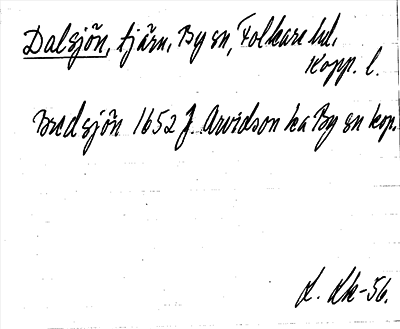 Dalsjön, tjärn, By sn, Folkare hd,
Kopp. l.
Bredsjön 1652 J. Arvidson ka By sn kop.
L. Lk-56.